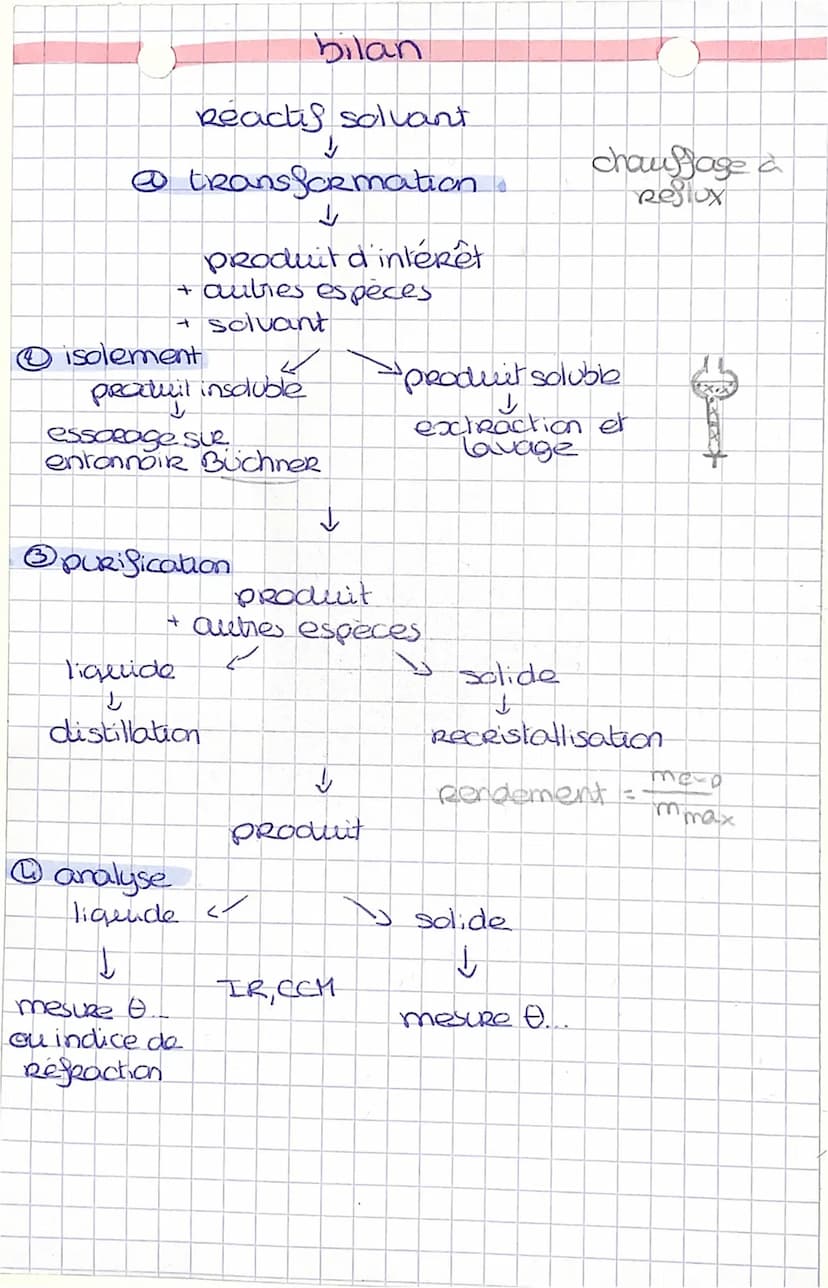 bilan
réactif solvant
↓
① transformation
chauffage à
reflux
↓
produit d'intérêt
+ autres espèces
+ solvant
② isolement
↙ ↘
produit insoluble
produit soluble
↓
↓
essorage sur
entonnoir Büchner
extraction et
lavage
↓
③ purification
produit
+ autres espèces
↙ ↘
liquide
solide
↓
↓
distillation
recristallisation
↓
rendement = mexp / mmax
produit
④ analyse
↙ ↘
liquide
solide
↓
↓
IR, CCM
mesure θ...
ou indice de
réfraction
mesure θ...